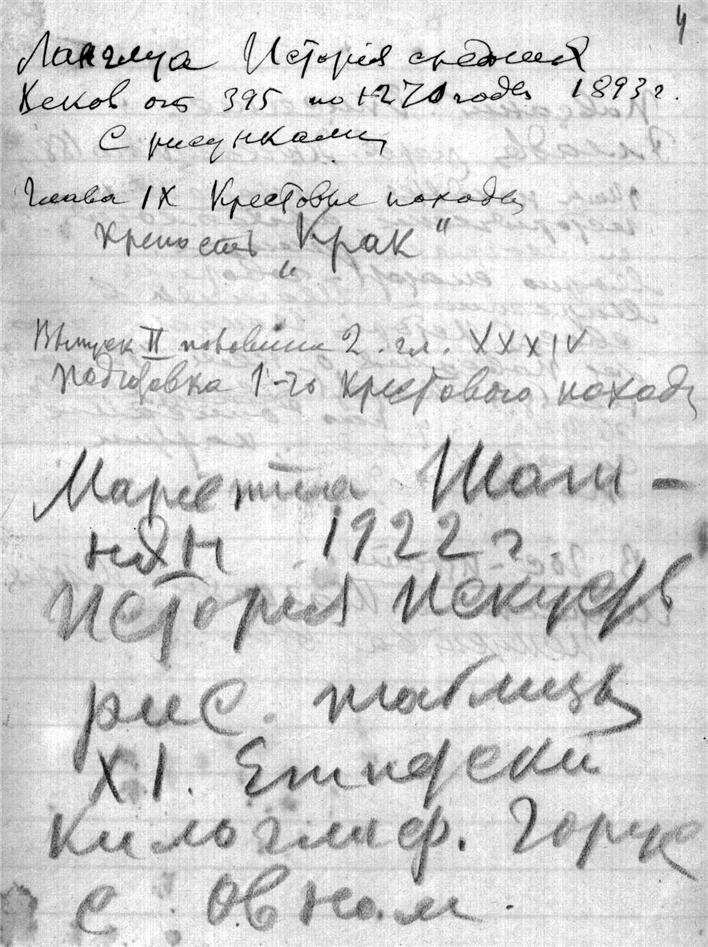 4
Ланглуа История средних
веков от 395 по 1270 годы 1893 г.
С рисунками
Глава IX Крестовые походы
крепость „Крак"
Выпуск II половина 2. гл. XXXIV
подготовка 1-го крестового похода
Мариетта Шаги-
нян 1922 г
История Искусств
рис. таблицы
XI.
с Овном.